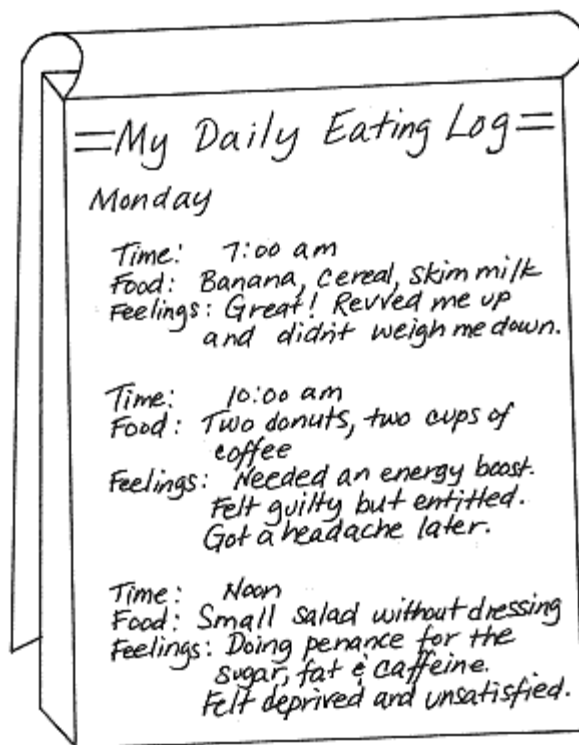 =My Daily Eating Log=
Monday
Time: 7:00 am
Food: Banana, cereal, skim milk
Feelings: Great! Revved me up
and didn't weigh me down.
Time: 10:00 am
Food: Two donuts, two cups of
coffee
Feelings: Needed an energy boost.
Felt guilty but entitled.
Got a headache later.
Time: Noon
Food: Small salad without dressing
Feelings: Doing penance for the
sugar, fat & caffeine.
Felt deprived and unsatisfied.